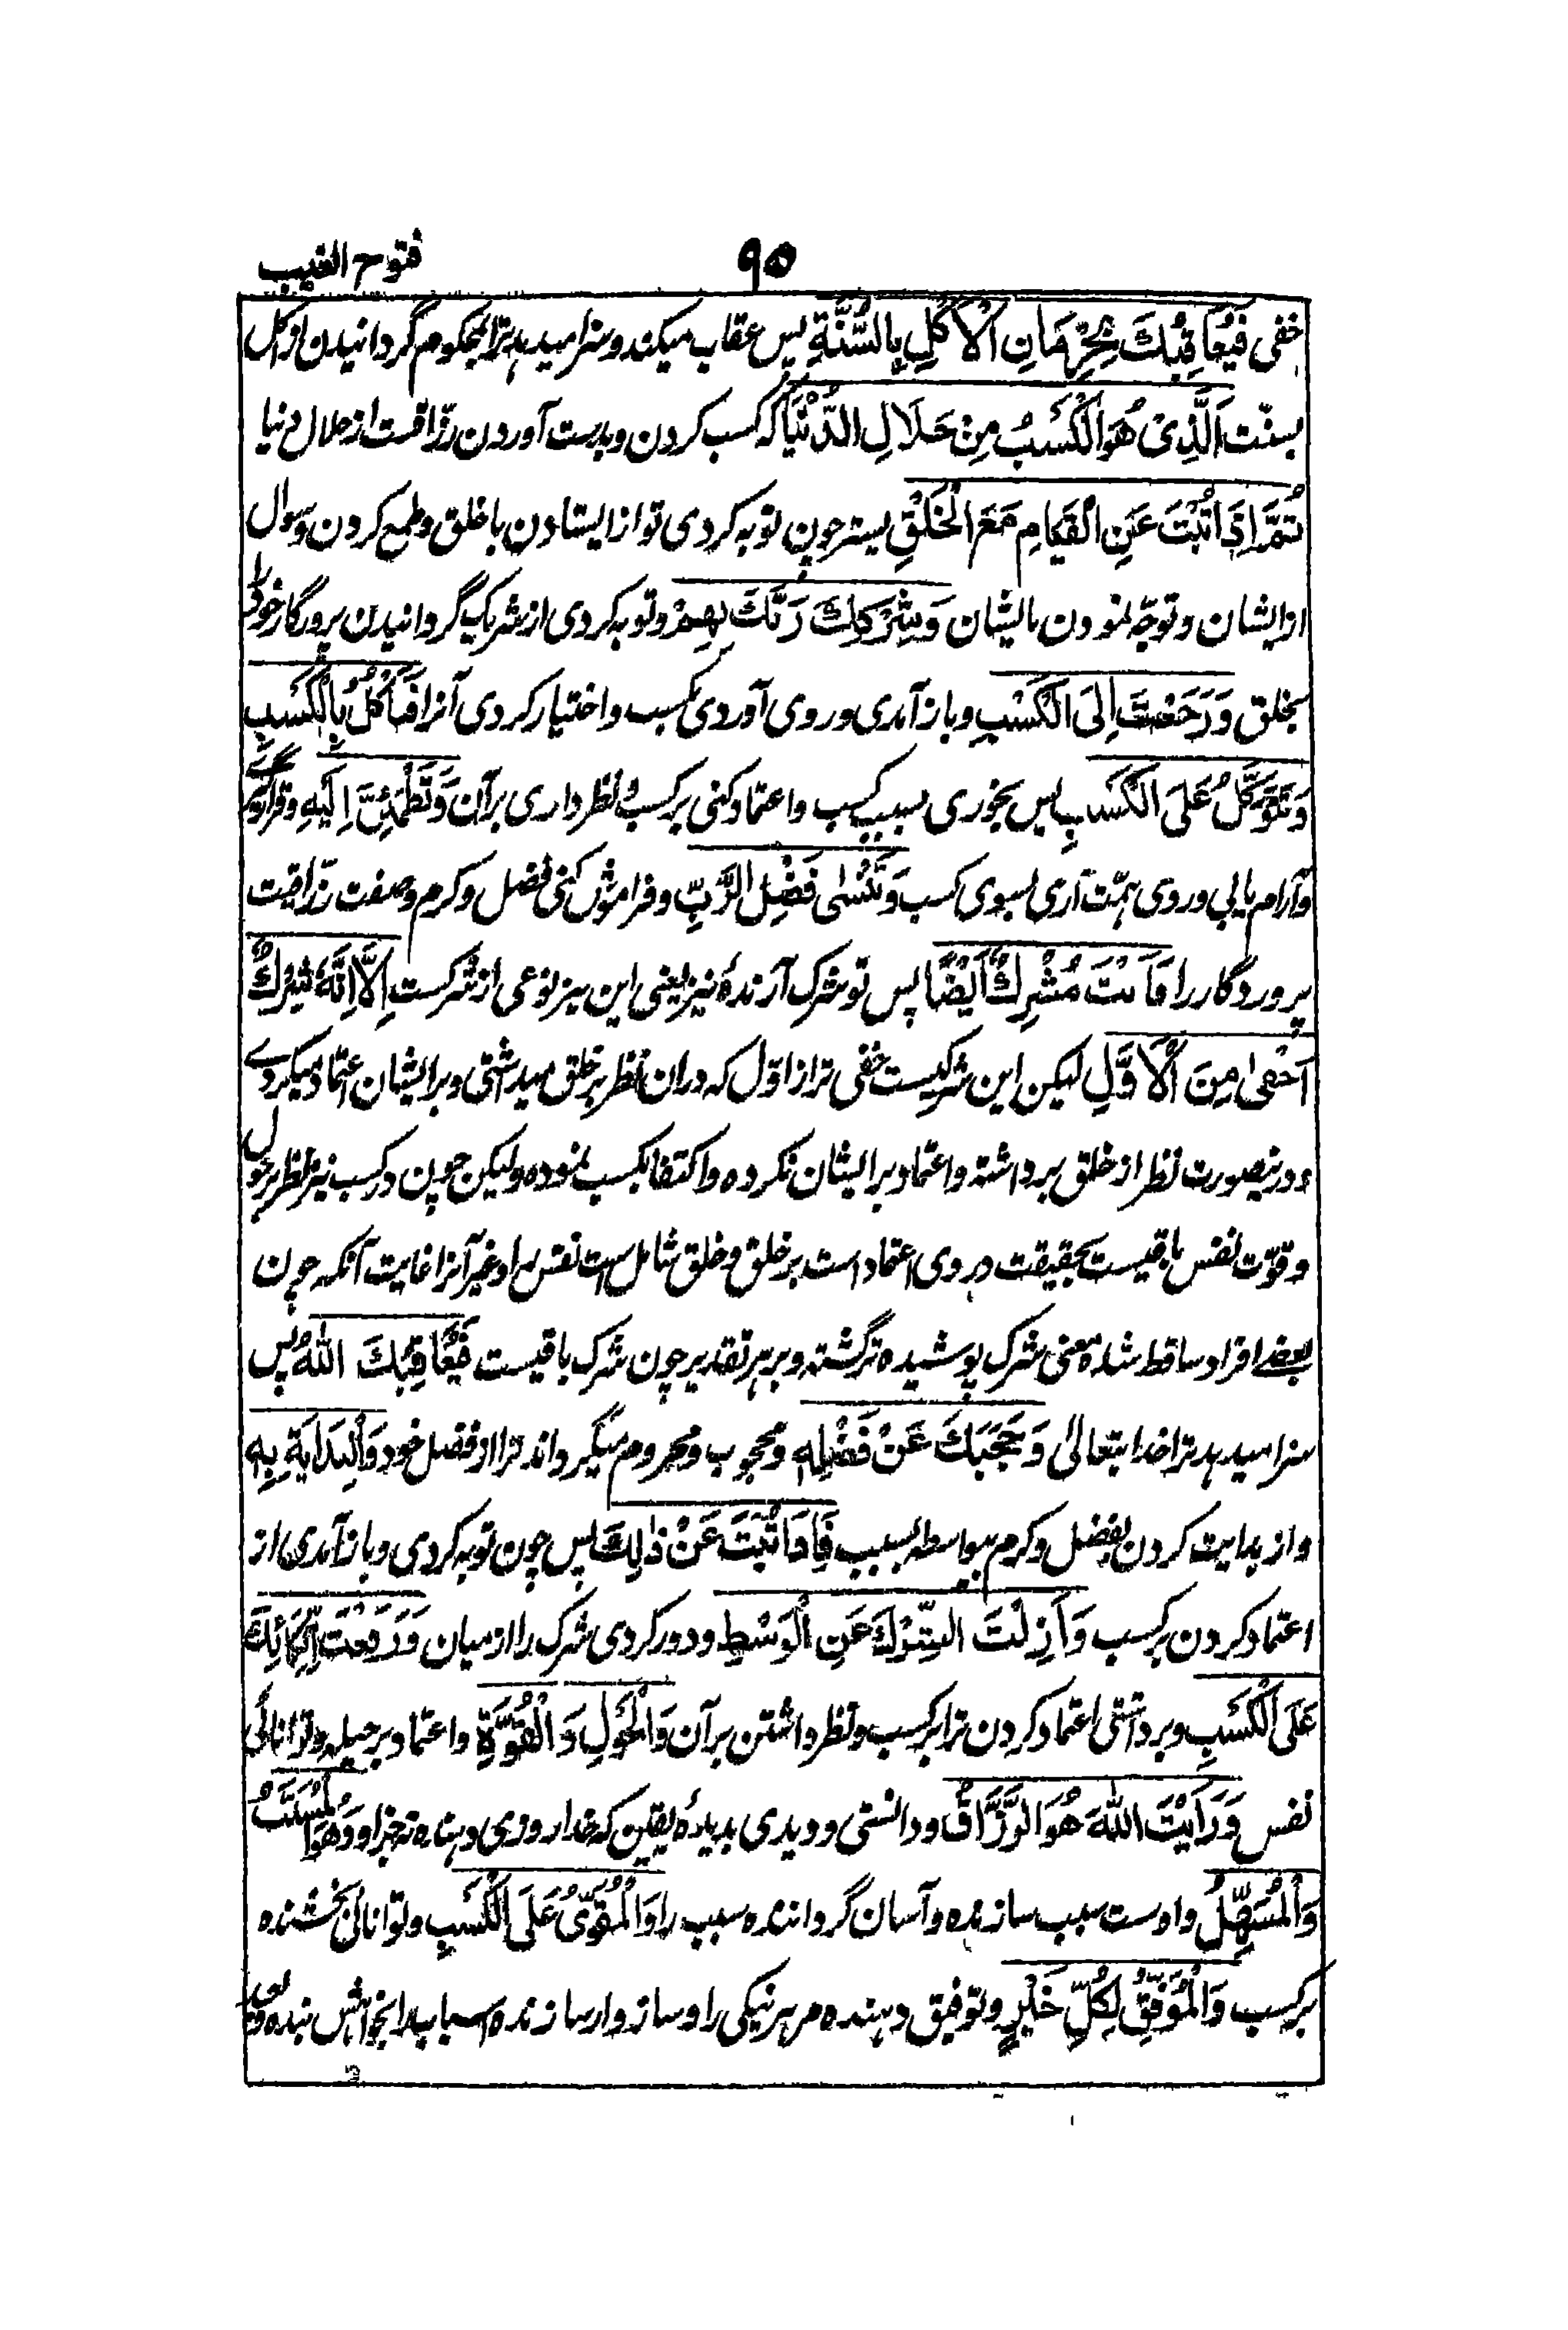 فتوح الغیب
۹۵
خفی فَیُعَاقِبُكَ بِحِرْمَانِ الْاَكْلِ بِالسُّنَّةِ پس عقاب میکند و سزا میدهد ترا بمحکوم گردانیدن از اکل
بسنّت اَلَّذِیْ هُوَ الْكَسْبُ مِنْ حَلَالِ الدُّنْیَا که کسب کردن و بدست آوردن رزاقست از حلال دنیا
ثُمَّ اِذَا تُبْتَ عَنِ الْقِیَامِ مَعَ الْخَلْقِ پستر چون توبه کردی تو از ایستادن با خلق و طمع کردن و سوال
از ایشان و توجّه نمودن بایشان وَشِرْكِكَ رَبَّكَ بِهِمْ و توبه کردی از شریک گردانیدن پرورگار خود را
بخلق وَرَجَعْتَ اِلَی الْكَسْبِ و باز آمدی و روی آوردی بکسب و اختیار کردی آنرا فَتَاْكُلُ بِالْكَسْبِ
وَتَتَوَكَّلُ عَلَی الْكَسْبِ پس بخوری بسبب کسب و اعتماد کنی بر کسب و نظر داری بر آن وَتَطْمَئِنَّ اِلَیْهِ و قرار
و آرام یابی و روی همّت آری بسوی کسب وَتَنْسٰی فَضْلَ الرَّبِّ و فراموش کنی فضل و کرم و صفت رزاقیت
پروردگار را فَاَنْتَ مُشْرِكٌ اَیْضًا پس تو شرک آرندهٔ نیز یعنی این نیز نوعی از شرکست اِلَّا اَنَّهٗ شِرْكٌ
اَخْفٰی مِنَ الْاَوَّلِ لیکن این شرکیست خفی تر از اوّل که دران نظر بر خلق میداشتی و بر ایشان اعتماد میکردے
و درینصورت نظر از خلق برداشته و اعتماد بر ایشان نکرده و اکتفا بکسب نموده و لیکن چون در کسب نیز نظر بر حول
و قوّت نفس باقیست بحقیقت در وی اعتماد است بر خلق و خلق شامل ست نفس را و غیر آنرا غایت آنکه چون
بعضے افراد ساقط شده معنی شرک پوشیده تر گشته و بر هر تقدیر چون شرک باقیست فَیُعَاقِبُكَ اللّٰهُ پس
سزا میدهد ترا خدایتعالیٰ وَیَحْجُبُكَ عَنْ فَضْلِهٖ و محجوب و محروم میگرداند ترا از فضل خود وَالْبِدَایَةِ بِهٖ
و از بدایت کردن بفضل و کرم بیواسطه سبب فَاِذَا تُبْتَ عَنْ ذٰلِكَ پس چون توبه کردی و باز آمدی از
اعتماد کردن بر کسب وَاَزَلْتَ الشِّرْكَ عَنِ الْوَسْطِ و دور کردی شرک را از میان وَرَفَعْتَ اِتِّكَالَكَ
عَلَی الْكَسْبِ و برداشتی اعتماد کردن ترا بر کسب و نظر داشتن بر آن وَالْحَوْلِ وَالْقُوَّةِ و اعتماد بر حیله و توانائی
نفس وَرَاَیْتَ اللّٰهَ هُوَ الرَّزَّاقُ و دانستی و دیدی بدیدهٔ یقین که خدا روزی دهنده نه جز او وَهُوَ الْمُسَبِّبُ
وَالْمُسَهِّلُ و اوست سبب سازنده و آسان گرداننده سبب را وَالْمُقَوِّیْ عَلَی الْكَسْبِ و توانائی بخشنده
بر کسب وَالْمُوَفِّقُ لِكُلِّ خَیْرٍ و توفیق دهنده مر هر نیکی را و سازوار سازنده اسباب را بخواهش بنده